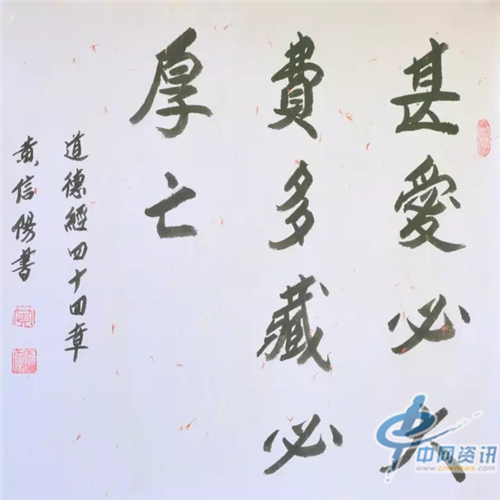 甚愛必大
費多藏必
厚亡
道德經四十四章
黄信陽書
中网资讯